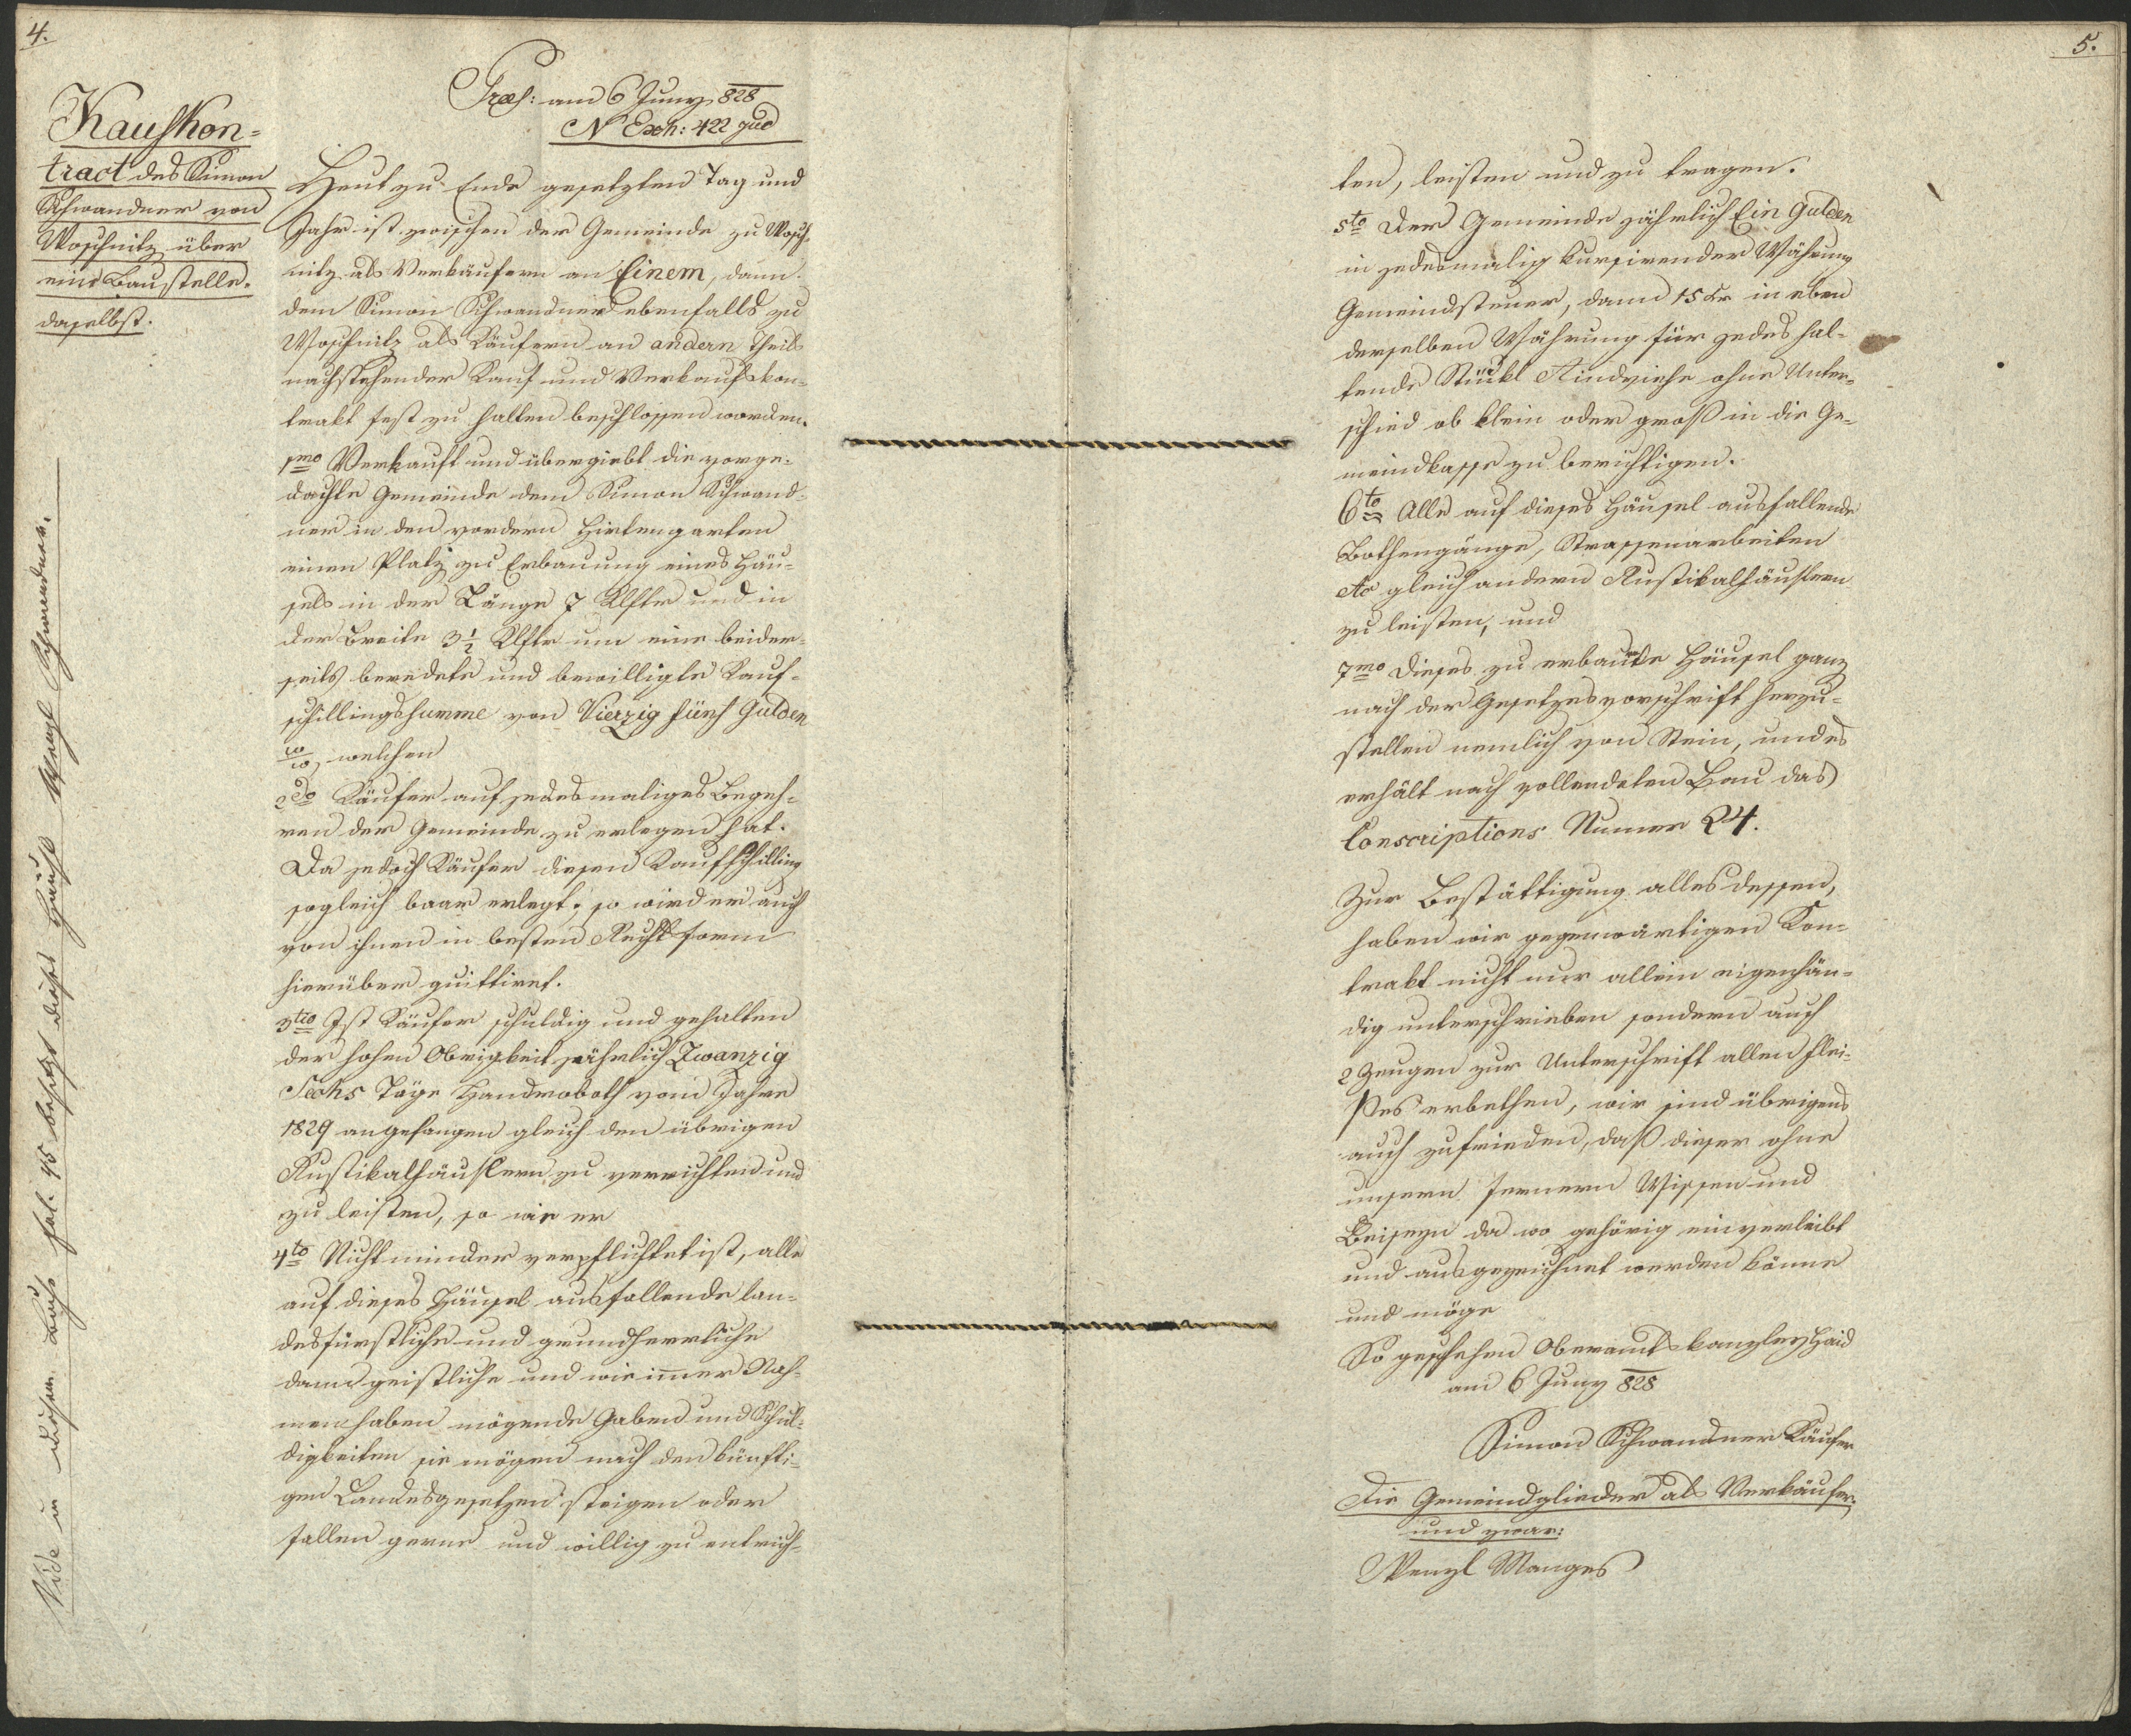 4.
Præs: am 6 Juny 828
N Exh: 422 jud
Kaufkon=
tract des Simon
Schwandner von
Woschnitz über
eine Baustelle
daselbst.
Heut zu Ende gesetzten Tag und
Jahr ist zwischen der Gemeinde zu Wosch=
nitz als Verkäufern an Einem, dann
dem Simon Schwandner ebenfalls zu
Woschnitz als Käufern an andern Theils
nachstehender Kauf und Verkaufskon=
trakt fest zu halten beschlossen worden.
1mo Verkauft und übergiebt die vorge=
dachte Gemeinde dem Simon Schwand=
ner in den vordern Hirtengarten
einen Platz zu Erbauung eines Häu=
sels in der Länge 7 Klftr und in
der Breite 3 1/2 Klftr um eine beider=
seits beredete und bewilligte Kauf=
schillingssumme von Vierzig fünf Gulden
W W, welchen
2do Käufer auf jedesmaliges Begeh=
ren der Gemeinde zu erlegen hat.
Da jedoch Käufer diesen Kaufschilling
sogleich baar erlegt; so wird er auch
von ihnen in besten Rechtsform
hierüber quittiret.
3tio Ist Käufer schuldig und gehalten
der hohen Obrigkeit jährlich Zwanzig
Sechs Täge Handroboth vom Jahre
1829 angefangen gleich den übrigen
Rustikalhäuslern zu verrichten und
zu leisten, so wie er
4to Nicht minder verpflichtet ist, alle
auf dieses Häusel ausfallende lan=
desfürstliche und grundherrliche
dann geistliche und wie imer Nah=
men haben mögende Gaben und Schul=
digkeiten sie mögen nach den künfti=
gen Landesgesetzen steigen oder
fallen gerne und willig zu entrich=
Vide in diesem Buche fol. 45 besitzt dieses Häusl Wenzl Schwandner.
5.
ten, leisten und zu tragen.
5to Der Gemeinde jährlich Ein Gulden
in jedesmalig kursirender Währung
Gemeindsteuer, dann 15 kr in eben
derselben Währung für jedes hal=
tende Stückl Rindviehe ohne Unter=
schied ob klein oder groß in die Ge=
meindkasse zu berichtigen.
6to Alle auf dieses Häusel ausfallende
Bothengänge, Strassenarbeiten
etc gleich andern Rustikalhäuslern
zu leisten, und
7mo Dieses zu erbaute Häusel ganz
nach der Gesetzesvorschrift herzu=
stellen nemlich von Stein, und es
erhält nach vollendeten Bau das
Conscriptions Numer 24.
Zur Bestättigung alles dessen,
haben wir gegenwärtigen Kon=
trakt nicht nur allein eigenhän=
dig unterschrieben sondern auch
2 Zeugen zur Unterschrift allen Flei=
ßes erbethen, wir sind übrigens
auch zufrieden, daß dieser ohne
unsern fernern Wissen und
Beiseyn da wo gehörig einverleibt
und ausgezeichnet werden könne
und möge
So geschehen Oberamtskanzley Haid
am 6 Juny 828
Simon Schwandner Käufer
Die Gemeindglieder als Verkäufer,
und zwar:
Wenzl Manges